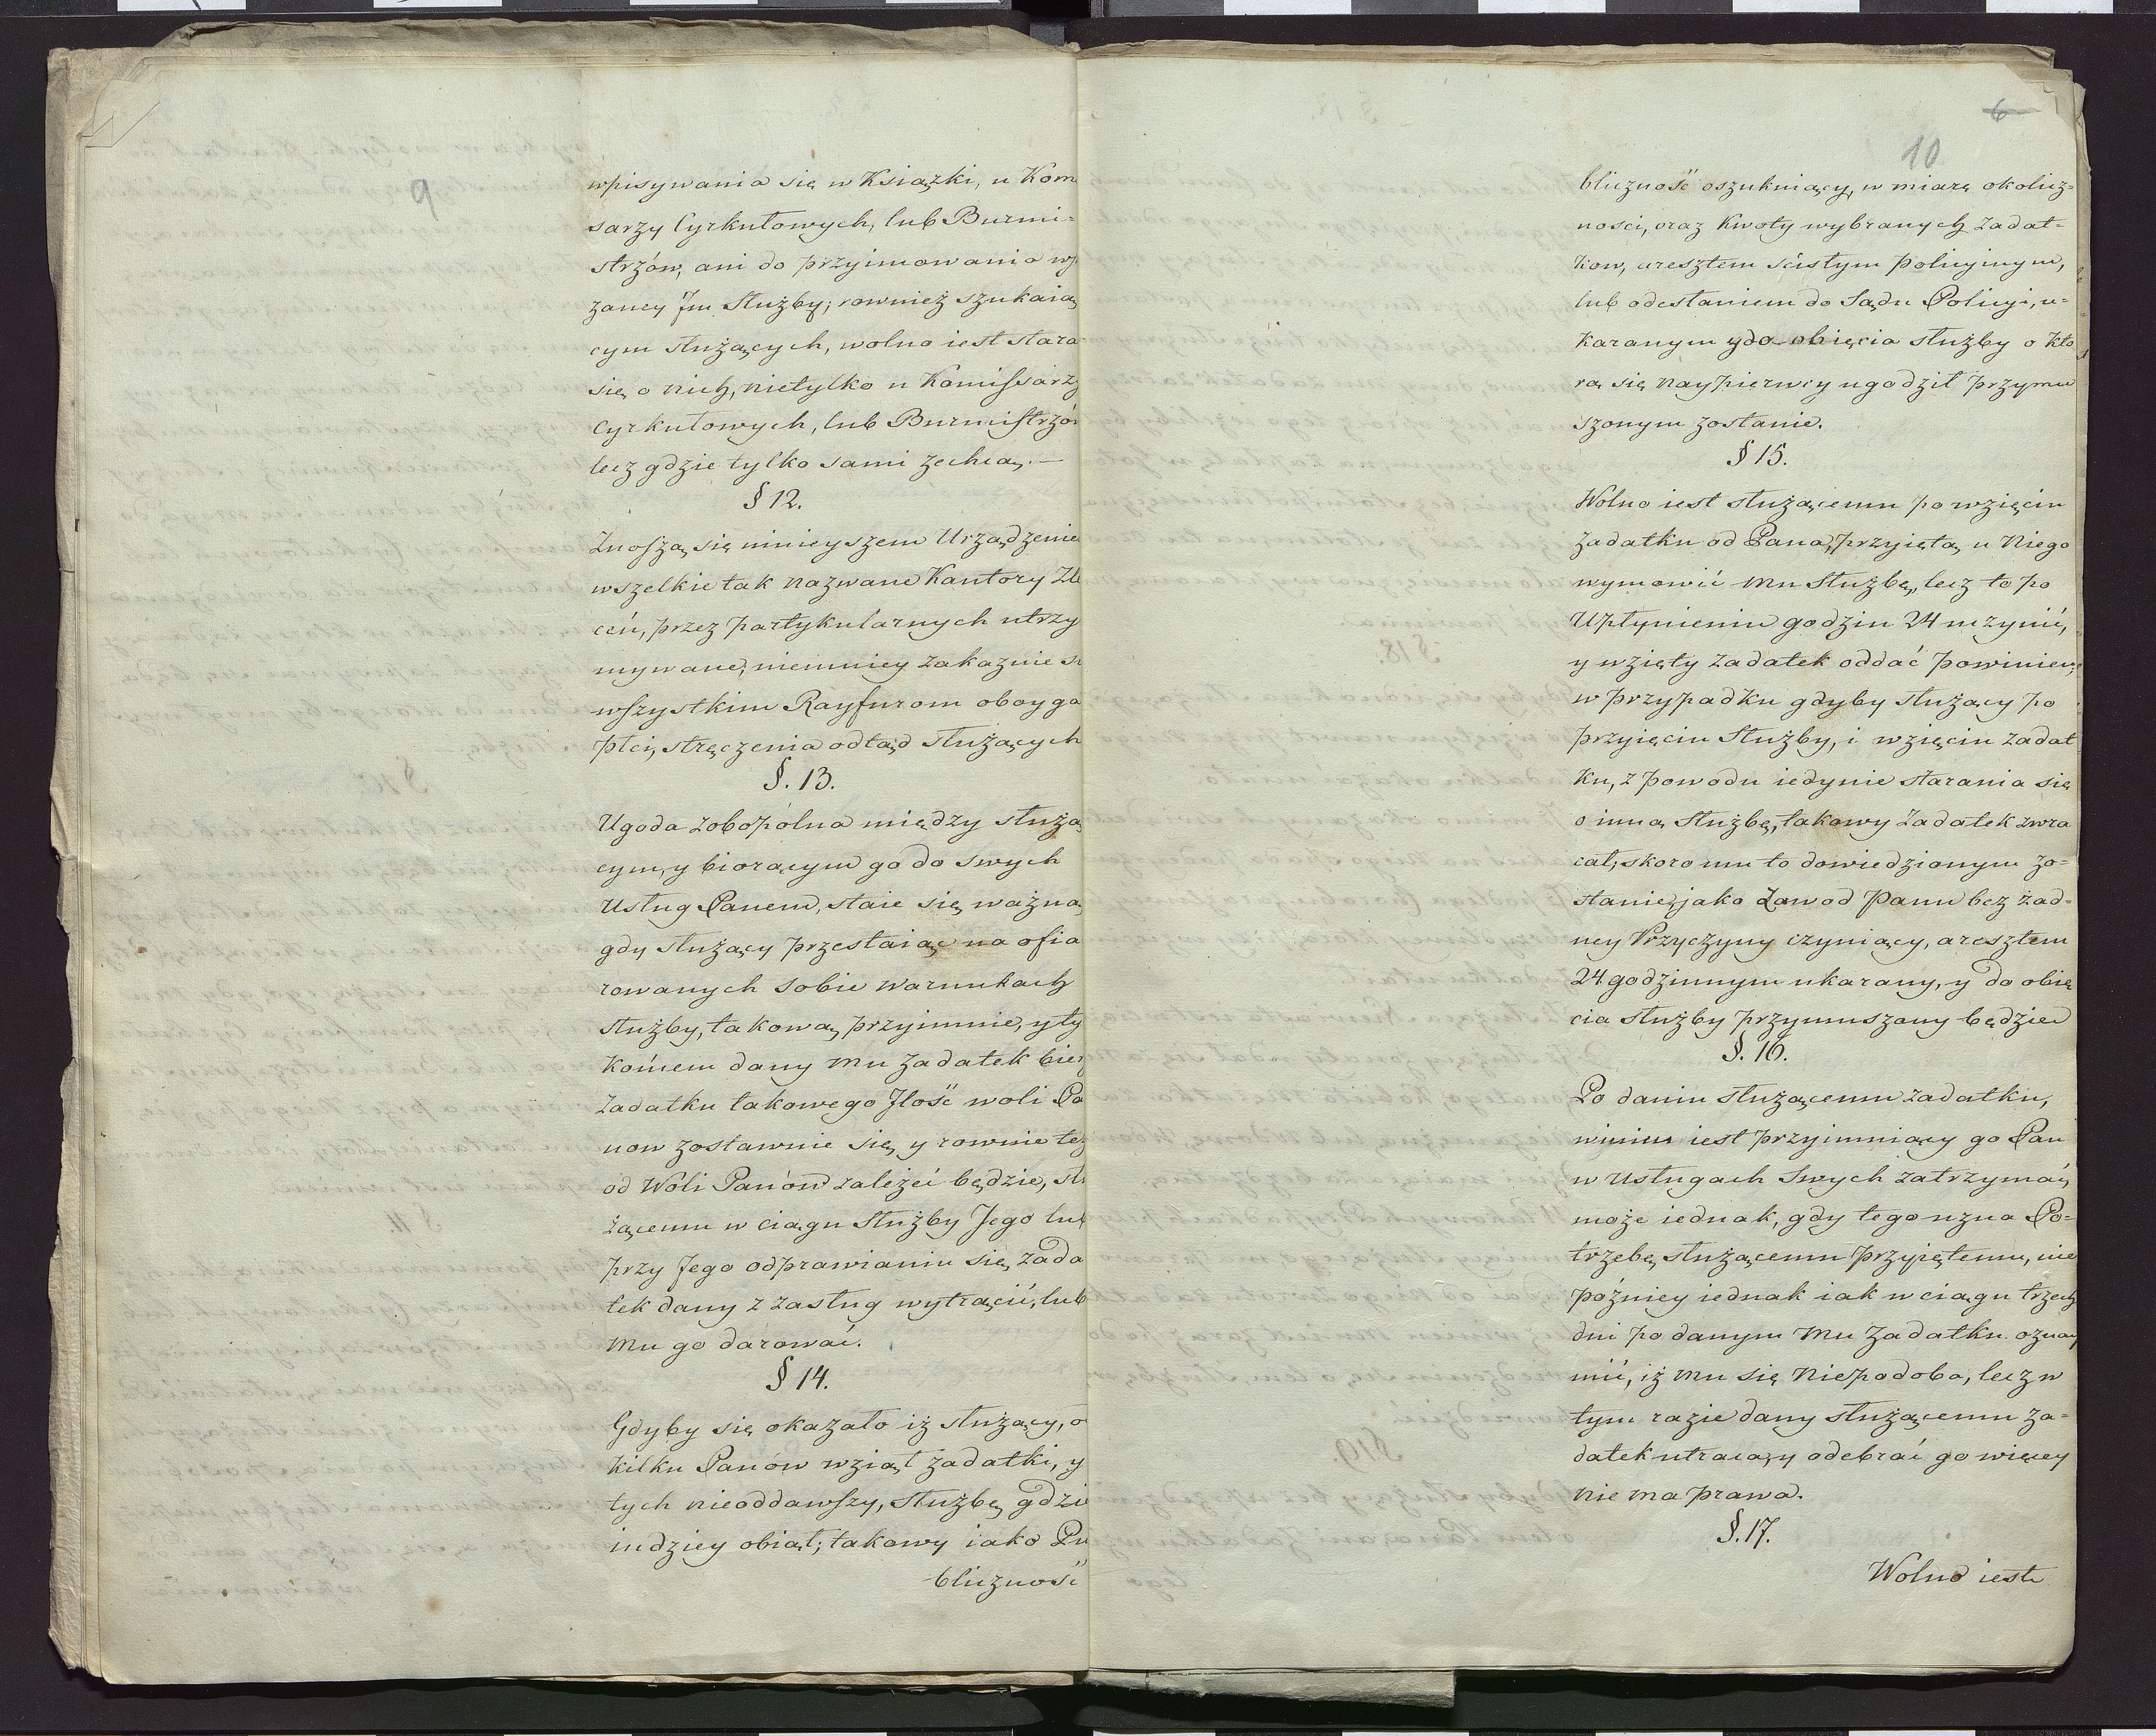 9
wpisywania się w Ksiąszki, u Kom
sarzy Cyrkułowych, lub Burmi=
strzów, ani do przyimowania
zaney Jm Służby; rownież szukaią
cym służących, wolno iest stara
się o nich, nietylko u Komissarzy
Cyrkułowych, lub Burmistrzów
lecz gdzie tylko sami zechcą. —
§ 12.
Znoszą się ninieyszem Urządzenie
wszelkie tak nazwane Kantory Zle
ceń, przez partykularnych utrzy
mywane; niemniey zakazuie s
wszystkim Rayfurom oboyga
płci, stręczenia odtąd służących
§. 13.
Ugoda zobopólna między służą
cym, y biorącym go do swych
Usług Panem, staie się ważną
gdy służący przestaiąc na ofia
rowanych sobie warunkach
służby, takową przyimuie, y ty
kómem dany mu zadatek bier
zadatku takowego Jlość woli Pa
now zostawuie się, y rownie też
od Woli Panów zależeć będzie, słu
żącemu w ciągu Służby Jego lub
przy Jego odprawianiu się, zada
tek dany z zasług wytrącić, lub
mu go darować.
§ 14.
Gdyby się okazało iż służący, o
kilku Panów wziął zadatki, y
tych nieoddawszy, służbę gdzie
indziey obiął; takowy iako Pu
bliczność
6
10
bliczność oszukuiący, w miarę okolicz=
ności, oraz Kwoty wybranych zadat=
kow, aresztem ścisłym policyinym,
lub odesłaniem do Sądu Policyi, u=
karanym y do obięcia służby o któ
rą się naypierwey ugodził przymu
szonym zostanie.
§ 15.
Wolno iest służącemu po wzięciu
zadatku od Pana, przyiętą u Niego
wymowić mu Służbę, lecz to po
Upłynieniu godzin 24 uczynić,
y wzięty zadatek oddać powinien,
w przypadku gdyby służący po
przyięciu Służby, i wzięciu zadat
ku, z powodu iedynie starania się
o inną Służbę, takowy zadatek zwra
cał, skoro mu to dowiedzionym zo=
stanie, jako Zawod Panu bez żad=
ney Przyczyny czyniący, aresztem
24 godzinnym ukarany, y do obię
cia służby przymuszany będzie
§. 16.
Po daniu służącemu zadatku,
winien iest przyimuiący go Pan
w usługach Swych zatrzymać,
może iednak, gdy tego uzna Po=
trzebę, służącemu przyiętemu, nie
późniey iednak iak w ciągu trzech
dni po danym mu zadatku oznay
mić, iż mu się niepodoba, lecz w
tym razie dany służącemu za=
datek utraca, y odebrać go więcey
nie ma prawa.
§. 17.
Wolno iest